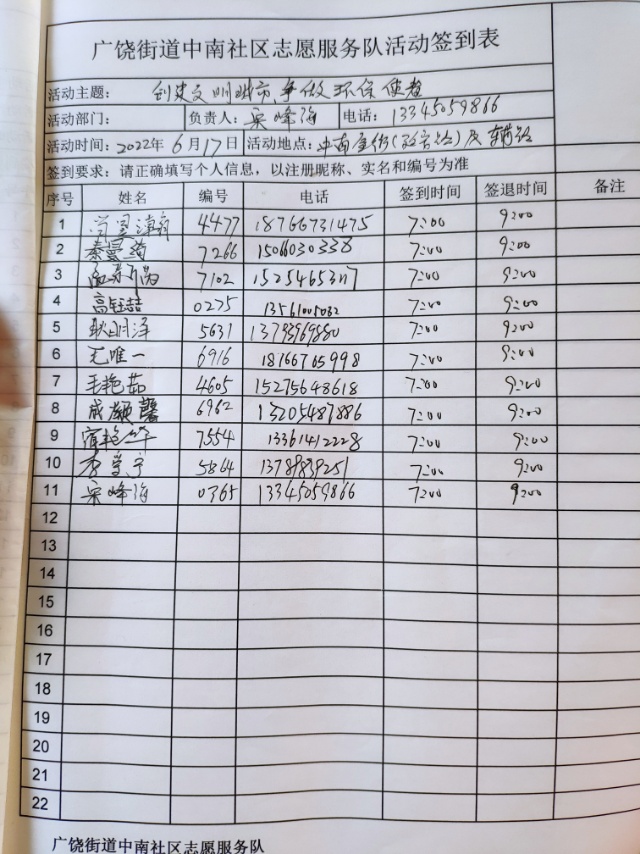 广饶街道中南社区志愿服务队活动签到表
活动主题： 创建文明城市，争做环保使者
活动部门： 负责人：宋峰海 电话：13345059866
活动时间：2022年6月17日 活动地点：中南
签到要求：请正确填写个人信息，以注册昵称、实名和编号为准
序号 姓名 编号 电话 签到时间 签退时间 备注
1 4477 18766731475 7:00 9:00
2 秦曼茹 7266 15066030338 7:00 9:00
3 7102 7:00 9:00
4 高钰喆 0275 13561005032 7:00 9:00
5 耿明泽 5631 13793969880 7:00 9:00
6 尤唯一 6916 18766765998 7:00 9:00
7 毛艳茹 4605 15275648618 7:00 9:00
8 成颜馨 6962 13205487886 7:00 9:00
9 7554 13361412228 7:00 9:00
10 5864 7:00 9:00
11 宋峰海 0365 13345059866 7:00 9:00
12
13
14
15
16
17
18
19
20
21
22
广饶街道中南社区志愿服务队